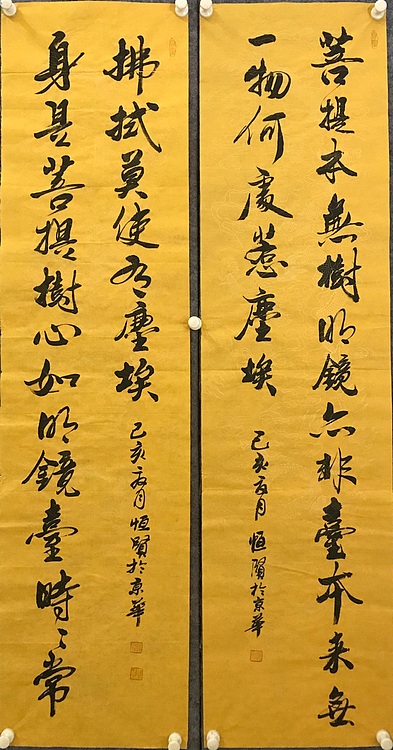 菩提本無樹明鏡亦非臺本来無
一物何處惹塵埃
己亥夏月恒賢於京華
身是菩提樹心如明鏡臺時々常
拂拭莫使有塵埃
己亥夏月恒賢於京華